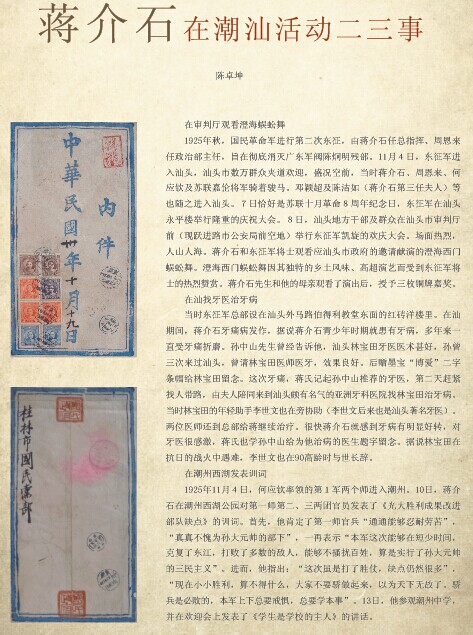 蒋介石在潮汕活动二三事
陈卓坤
在审判厅观看澄海蜈蚣舞
1925年秋，国民革命军进行第二次东征，由蒋介石任总指挥，周恩来
任政治部主任，旨在彻底消灭广东军阀陈炯明残部。11月4日，东征军进
入汕头，汕头市数万群众夹道欢迎，盛况空前，当时蒋介石、周恩来、何
应钦及苏联嘉伦将军骑着骏马，邓颖超及陈洁如（蒋介石第三任夫人）等
也随之进入汕头。7日恰好是苏联十月革命8周年纪念日，东征军在汕头
永平楼举行隆重的庆祝大会。8日，汕头地方干部及群众在汕头市审判厅
前（现跃进路市公安局前空地）举行东征军凯旋的欢庆大会，场面热烈，
人山人海。蒋介石和东征军将士观看应汕头市政府的邀请献演的澄海西门
蜈蚣舞。澄海西门蜈蚣舞因其独特的乡土风味、高超演艺而受到东征军将
士的热烈赞赏，蒋介石先生和他的母亲观看了演出后，授予三枚铜牌嘉奖。
在汕找牙医治牙病
当时东征军总部设在汕头外马路伯得利教堂东面的红砖洋楼里。在汕
期间，蒋介石牙痛病发作，据说蒋介石青少年时期就患有牙病，多年来一
直受牙痛折磨。孙中山先生曾经告诉他，汕头林宝田牙医医术甚好，孙曾
三次来过汕头，曾请林宝田医师医牙，效果良好，后赠墨宝“博爱”二字
条幅给林宝田留念。这次牙痛，蒋氏记起孙中山推荐的牙医，第二天赶紧
找人带路，由夫人陪同来到汕头颇有名气的亚洲牙科医院找林宝田治牙病，
当时林宝田的年轻助手李世文也在旁协助（李世文后来也是汕头著名牙医）。
两位医师还到总部给蒋继续治疗。很快蒋介石就感到牙病有明显好转，对
牙医很感激，蒋氏也学孙中山给为他治病的医生题字留念。据说林宝田在
抗日的战火中遇难，李世文也在90高龄时与世长辞。
在潮州西湖发表训词
1925年11月4日，何应钦率领的第1军两个师进入潮州。10日，蒋介
石在潮州西湖公园对第一师第二、三两团官员发表了《光大胜利成果改进
部队缺点》的训词。首先，他肯定了第一师官兵“通通能够忍耐劳苦”，
“真真不愧为孙大元帅的部下”，一再表示“本军这次能够在短少时间，
克复了东江，打败了多数的敌人，能够不骚扰百姓，算是实行了孙大元帅
的三民主义”。进而，他指出：“这次虽是打了胜仗，缺点仍然很多”，
“现在小小胜利，算不得什么，大家不要骄傲起来，以为天下无敌了。骄
兵是必败的，本军上下总要戒惧，总要学本事”。13日，他参观潮州中学，
并在欢迎会上发表了《学生是学校的主人》的讲话。
内件
中華民國卅年十月十九日
桂林市國民黨部